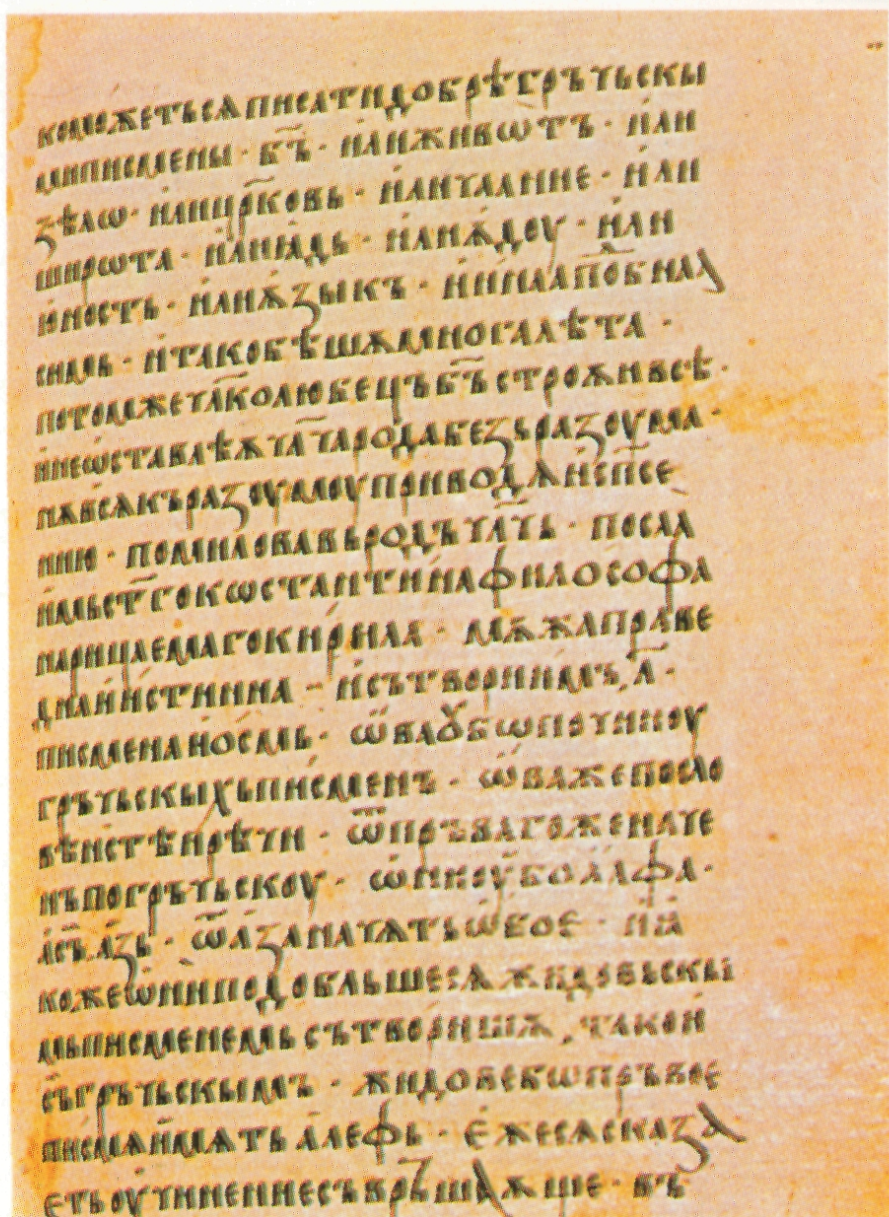 коможетьсѧписатидобрѣгръчьскы
миписмены · б҃ъ · и҆лиживѡтъ · и҆ли
ѕѣлѡ · и҆лицр҃ковь · и҆личаание · и҆ли
широта · и҆лиꙗдь · и҆лиѫдоу · и҆ли
юность · и҆лиѫзыкъ · и҆инаапо҃бнаа
симь · итакобѣшѫмногалѣта ·
потомжечл҃колюбецъб҃ъстроѫивсѣ ·
инеѡставлѣѫчл҃чародабезьразоума ·
нѫвсѧкъразоумоуприводѧисп҃се
нию · помиловавьродъчл҃чь · посла
и҆мьст҃гокѡстантинафилософа
нарицаемагокирила · мѫжаправе
днаиистинна · исътвории҆мъ.л҃ ·
писменаи҆осмь · ѡ҆ваꙋбѡпочиноу
гръчьскыхьписменъ · ѡ҆важепосло
вѣнстѣирѣчи · ѿпръвагоженаче
нъпогръчьскоу · ѡ҆ниоу҆боа҆лфа ·
а҆съ.а҆зь · ѿа҆заначѧтъѡ҆бое · иꙗ
кожеѡ҆ниподобльшесѧжидовьскы
мьписменемьсътворишѫ . такои
съгръчьскымъ · жидовебѡпръвое
писмаи҆мать а҆лефь · є҆жесѧсказа
етьоучинениесъврьшаѫще · въ